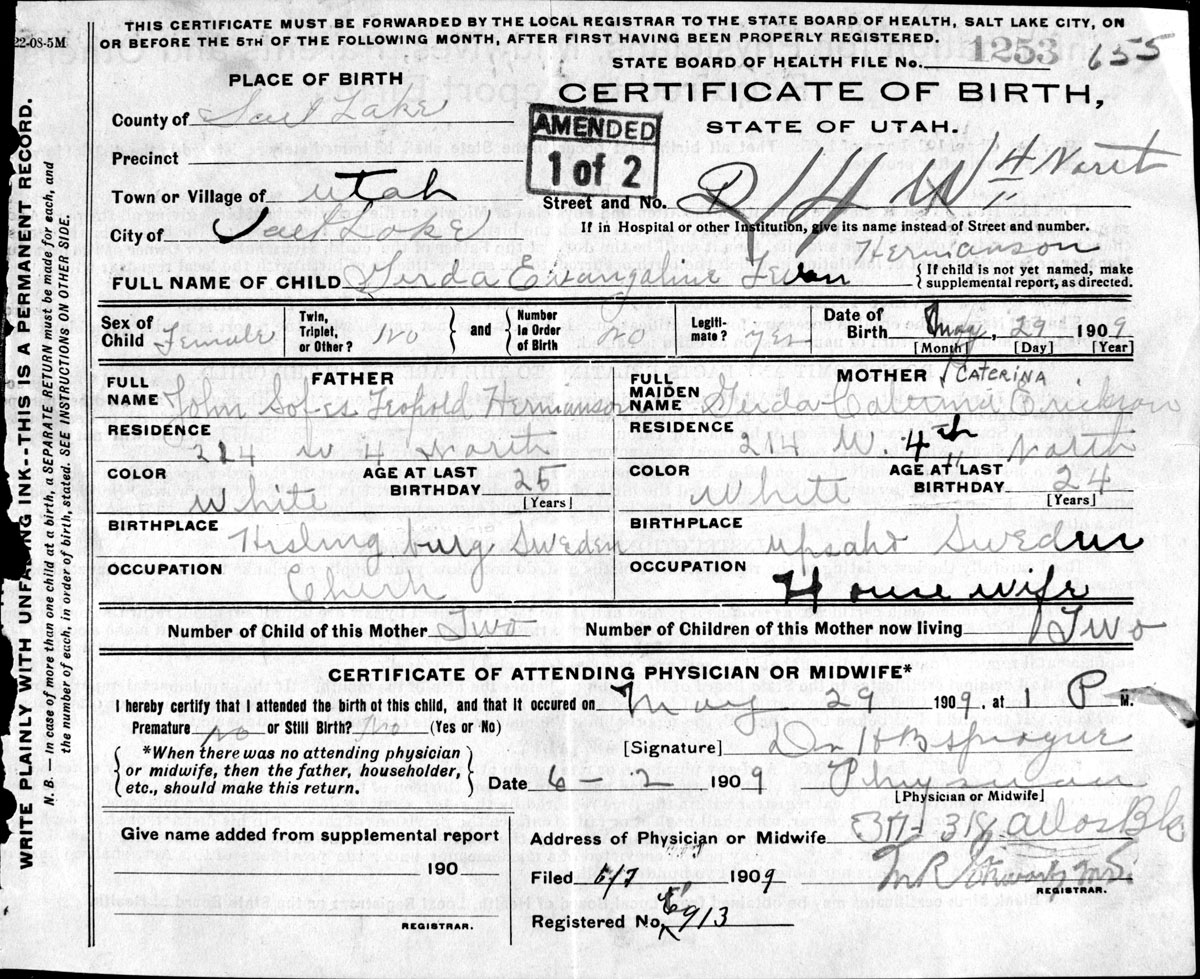 THIS CERTIFICATE MUST BE FORWARDED BY THE LOCAL REGISTRAR TO THE STATE BOARD OF HEALTH, SALT LAKE CITY, ON
OR BEFORE THE 5TH OF THE FOLLOWING MONTH, AFTER FIRST HAVING BEEN PROPERLY REGISTERED.
22-08-5M
STATE BOARD OF HEALTH FILE No. 1253 655
PLACE OF BIRTH
CERTIFICATE OF BIRTH,
STATE OF UTAH.
AMENDED
1 of 2
County of Salt Lake
Precinct
Town or Village of Utah
Street and No. 214 W 4 North
City of Salt Lake
If in Hospital or other Institution, give its name instead of Street and number.
Hermanson
FULL NAME OF CHILD Gerda Evangaline
{ If child is not yet named, make
supplemental report, as directed.
Sex of Child Female
Twin, Triplet, or Other? No
and
Number in Order of Birth no
Legiti-mate? yes
Date of Birth May 29 1909
[Month] [Day] [Year]
FATHER
FULL NAME John Leopold Hermanson
RESIDENCE
214 W 4 North
COLOR White
AGE AT LAST BIRTHDAY 26
[Years]
BIRTHPLACE Helsingburg Sweden
OCCUPATION Clerk
MOTHER
CATERINA
FULL MAIDEN NAME Gerda Erickson
RESIDENCE
214 W. 4th North
COLOR White
AGE AT LAST BIRTHDAY 24
[Years]
BIRTHPLACE Sweden
OCCUPATION House wife
Number of Child of this Mother Two
Number of Children of this Mother now living Two
CERTIFICATE OF ATTENDING PHYSICIAN OR MIDWIFE*
I hereby certify that I attended the birth of this child, and that it occured on May 29 1909, at 1 P M.
Premature? No or Still Birth? No (Yes or No)
*When there was no attending physician
or midwife, then the father, householder,
etc., should make this return.
[Signature] Dr H B Sprague
Date 6-2 1909 Physician
[Physician or Midwife]
Give name added from supplemental report
190
REGISTRAR.
Address of Physician or Midwife
Filed 1909
REGISTRAR.
Registered No. 913
WRITE PLAINLY WITH UNFADING INK--THIS IS A PERMANENT RECORD.
N. B. — In case of more than one child at a birth, a SEPARATE RETURN must be made for each, and
the number of each, in order of birth, stated. SEE INSTRUCTIONS ON OTHER SIDE.